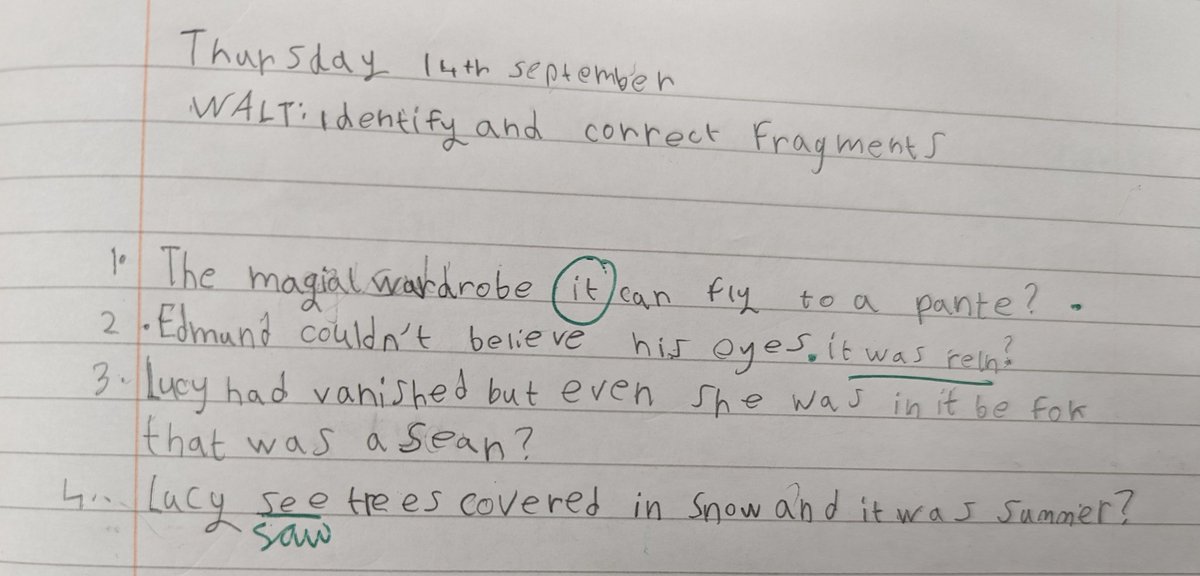 Thursday 14th september
WALT: identify and correct fragments
1. The magial wardrobe it can fly to a pante? .
2. Edmund couldn't believe his eyes. it was reln?
3. Lucy had vanished but even she was in it be for
that was a sean?
4.. Lucy see trees covered in snow and it was summer?
saw